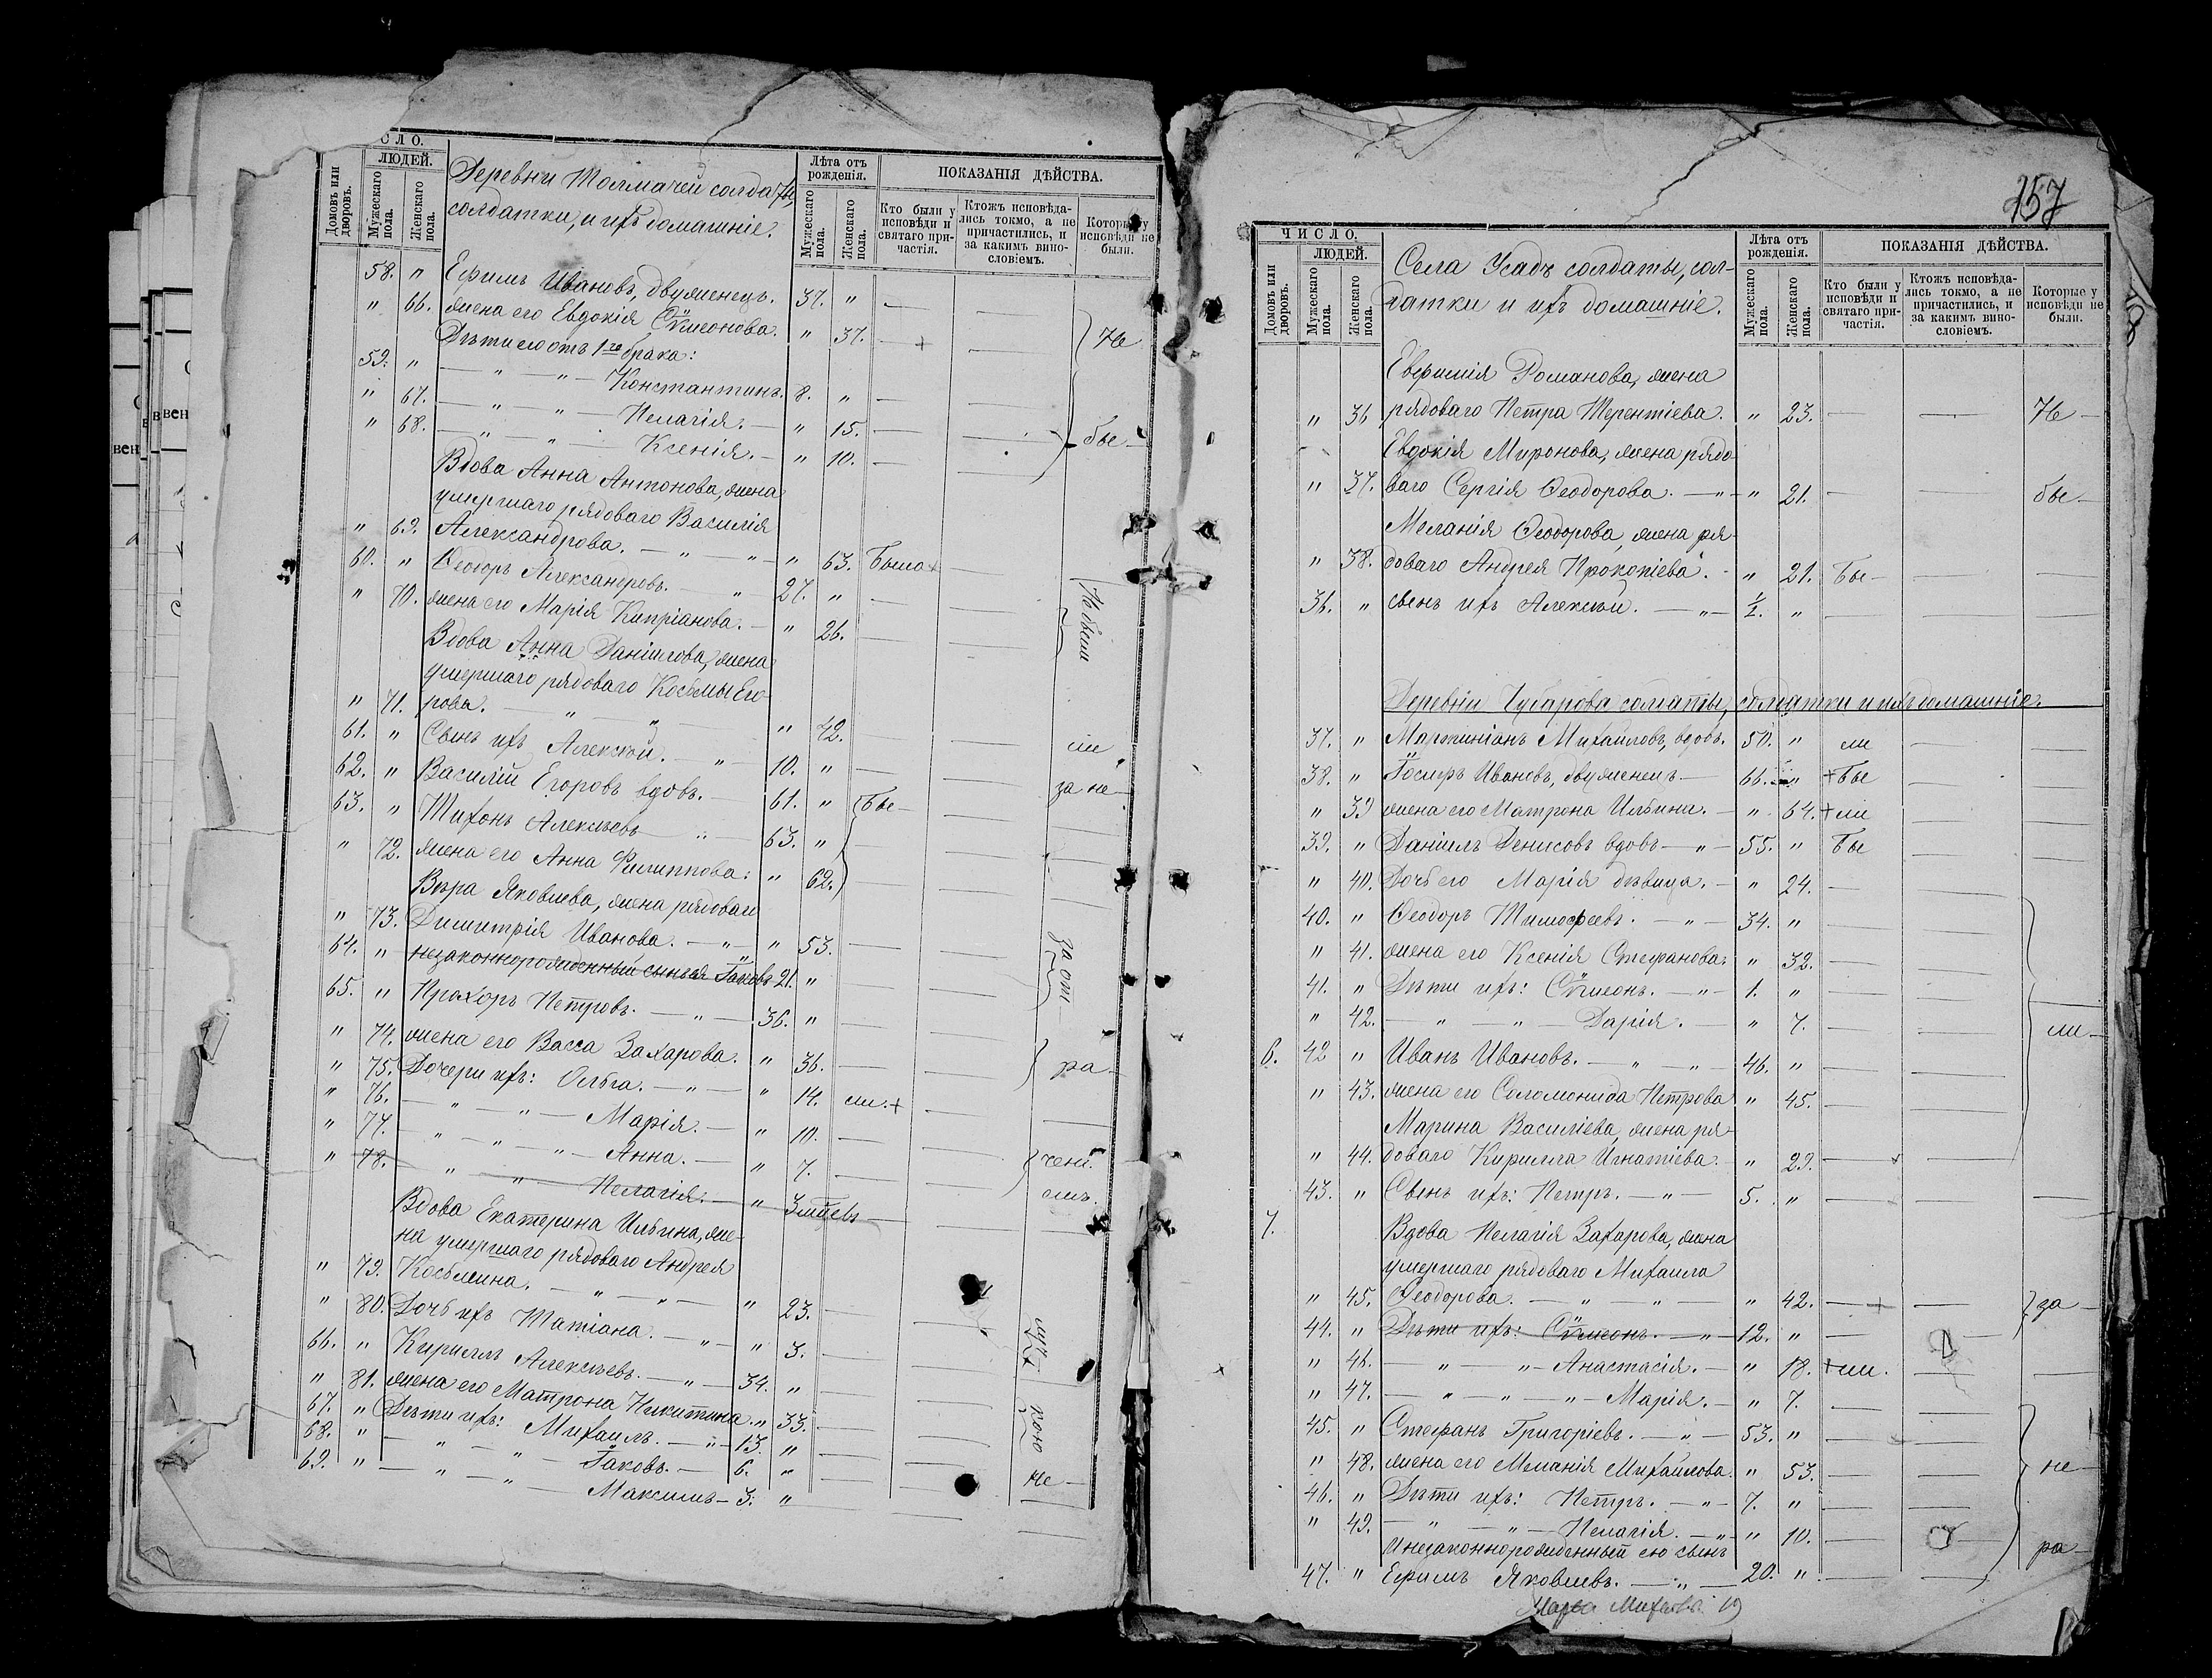 СЛО.
ЛЮДЕЙ.
Домовъ или дворовъ.
Мужескаго пола.
Женскаго пола.
Деревни Толмачей солдаты,
солдатки, и ихъ домашніе.
Лѣта отъ рожденія.
Мужескаго пола.
Женскаго пола.
ПОКАЗАНІЯ ДѢЙСТВА.
Кто были у исповѣди и святаго причастія.
Ктожъ исповѣдались токмо, а не причастились, и за какимъ винословіемъ.
Которые у исповѣди не были.
58. " Ефимъ Ивановъ, двуженецъ. 37. "
" 66. жена его Евдокія Сѵмеонова. " 37. — + — Не
Дѣти его отъ 1го брака:
59. " — " — " — Константинъ. 8. "
" 67. — " — " — Пелагія. — " 15.
" 68. — " — " — Ксенія. — " 10. бы-
Вдова Анна Антонова, жена
умершаго рядоваго Василія
" 69. Александрова. — " — " — " 63. Была +
60. " Ѳеодоръ Александровъ. — " 27. "
" 70. жена его Марія Кипріанова. — " 26. Не были
Вдова Анна Даніилова, жена
умершаго рядоваго Космы Его-
" 71. рова. — " — " — " 42.
61. " Сынъ ихъ Алексѣй. — " — 10. " ли
62. " Василій Егоровъ вдовъ. — 61. " Бы- за не-
63. " Тихонъ Алексѣевъ — " — 63. "
" 72. жена его Анна Филиппова: " 62.
Вѣра Яковлева, жена рядоваго
" 73. Димитрія Иванова. — " — " 53.
64. " незаконнорожденный сынъ ея Іаковъ 21. " за от-
65. " Прохоръ Петровъ. — " — 36. "
" 74. жена его Васса Захарова. " 36.
" 75. Дочери ихъ: Ольга. — " — " 14. ли. + ра-
" 76. — " — " — Марія. — " 10.
" 77. — " — " — Анна. — " 7.
" 78. — " — Пелагія. — " 3
Вдова Екатерина Ильина, же-
на умершаго рядоваго Андрея
" 79. Космина. — " — " — " 23.
" 80. Дочь ихъ Татіана. — " — " 3.
66. " Кириллъ Алексѣевъ. — " — 34. "
" 81. жена его Матрона Никитина. " 33.
67. " Дѣти ихъ: Михаилъ. — " — 13. "
68. " — " — " — Іаковъ. — 6. "
69. " — " — " — Максимъ — 3. " не-
157
ЧИСЛО.
ЛЮДЕЙ.
Домовъ или дворовъ.
Мужескаго пола.
Женскаго пола.
Села Усадъ солдаты, сол-
датки и ихъ домашніе.
Лѣта отъ рожденія.
Мужескаго пола.
Женскаго пола.
ПОКАЗАНІЯ ДѢЙСТВА.
Кто были у исповѣди и святаго причастія.
Ктожъ исповѣдались токмо, а не причастились, и за какимъ винословіемъ.
Которые у исповѣди не были.
Евфимія Романова, жена
" 36 рядоваго Петра Терентіева. " 23. — — Не-
Евдокія Миронова, жена рядо-
" 37. ваго Сергія Ѳеодорова. — " — " 21. — — бы-
Меланія Ѳеодорова, жена ря-
" 38. доваго Андрея Прокопіева. — " 21. Бы-
36. " сынъ ихъ Алексѣй. — " — ½. "
Деревни Чубарова солдаты, солдатки и ихъ домашніе.
37. " Мартиніанъ Михайловъ, вдовъ. 50. " ли
38. " Іосифъ Ивановъ, двуженецъ — 66. " + Бы
" 39 жена его Матрона Ильина. — " 64. + ли
39. " Даніилъ Денисовъ вдовъ — " — 55. " Бы
" 40. Дочь его Марія дѣвица. — " 24.
40. " Ѳеодоръ Тимофеевъ. — " — 34. "
" 41. жена его Ксенія Стефанова. " 32.
41. " Дѣти ихъ: Сѵмеонъ. — " — 1. "
" 42. — " — " — Дарія. — " 7. ли-
6. 42 " Иванъ Ивановъ. — " — " — 46. "
" 43. жена его Соломонида Петрова " 45.
Марина Василіева, жена ря-
" 44. доваго Кирилла Игнатіева. — " 29.
43. " Сынъ ихъ: Петръ. — " — 5. "
7. Вдова Пелагія Захарова, жена
умершаго рядоваго Михаила
" 45. Ѳеодорова. — " — " — " 42. — + — за-
44. " Дѣти ихъ: Сѵмеонъ. — " — 12. "
" 46. — " — " — Анастасія. — " 18. + ли.
" 47. — " — " — " — Марія. — " 7.
45. " Стефанъ Григоріевъ. — " — 53. "
" 48. жена его Меланія Михайлова. " 53. не-
46. " Дѣти ихъ: Петръ. — " — 7. "
" 49. — " — " — Пелагія. — " — " 10.
И незаконнорожденный ею сынъ ра-
47. " Ефимъ Яковлевъ. — " — 20. "
19